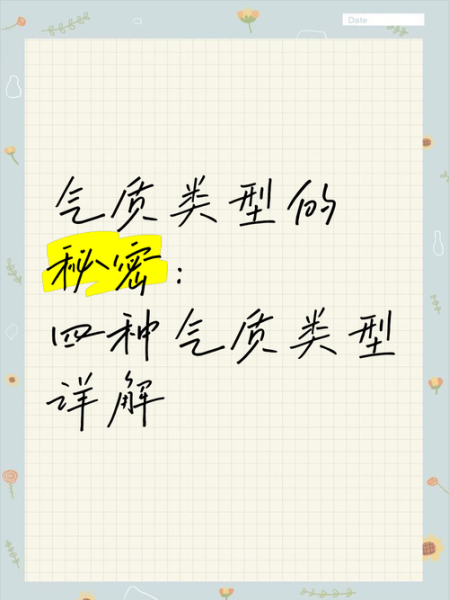 Date
气质类型的
秘密：
四种气质类型
详解